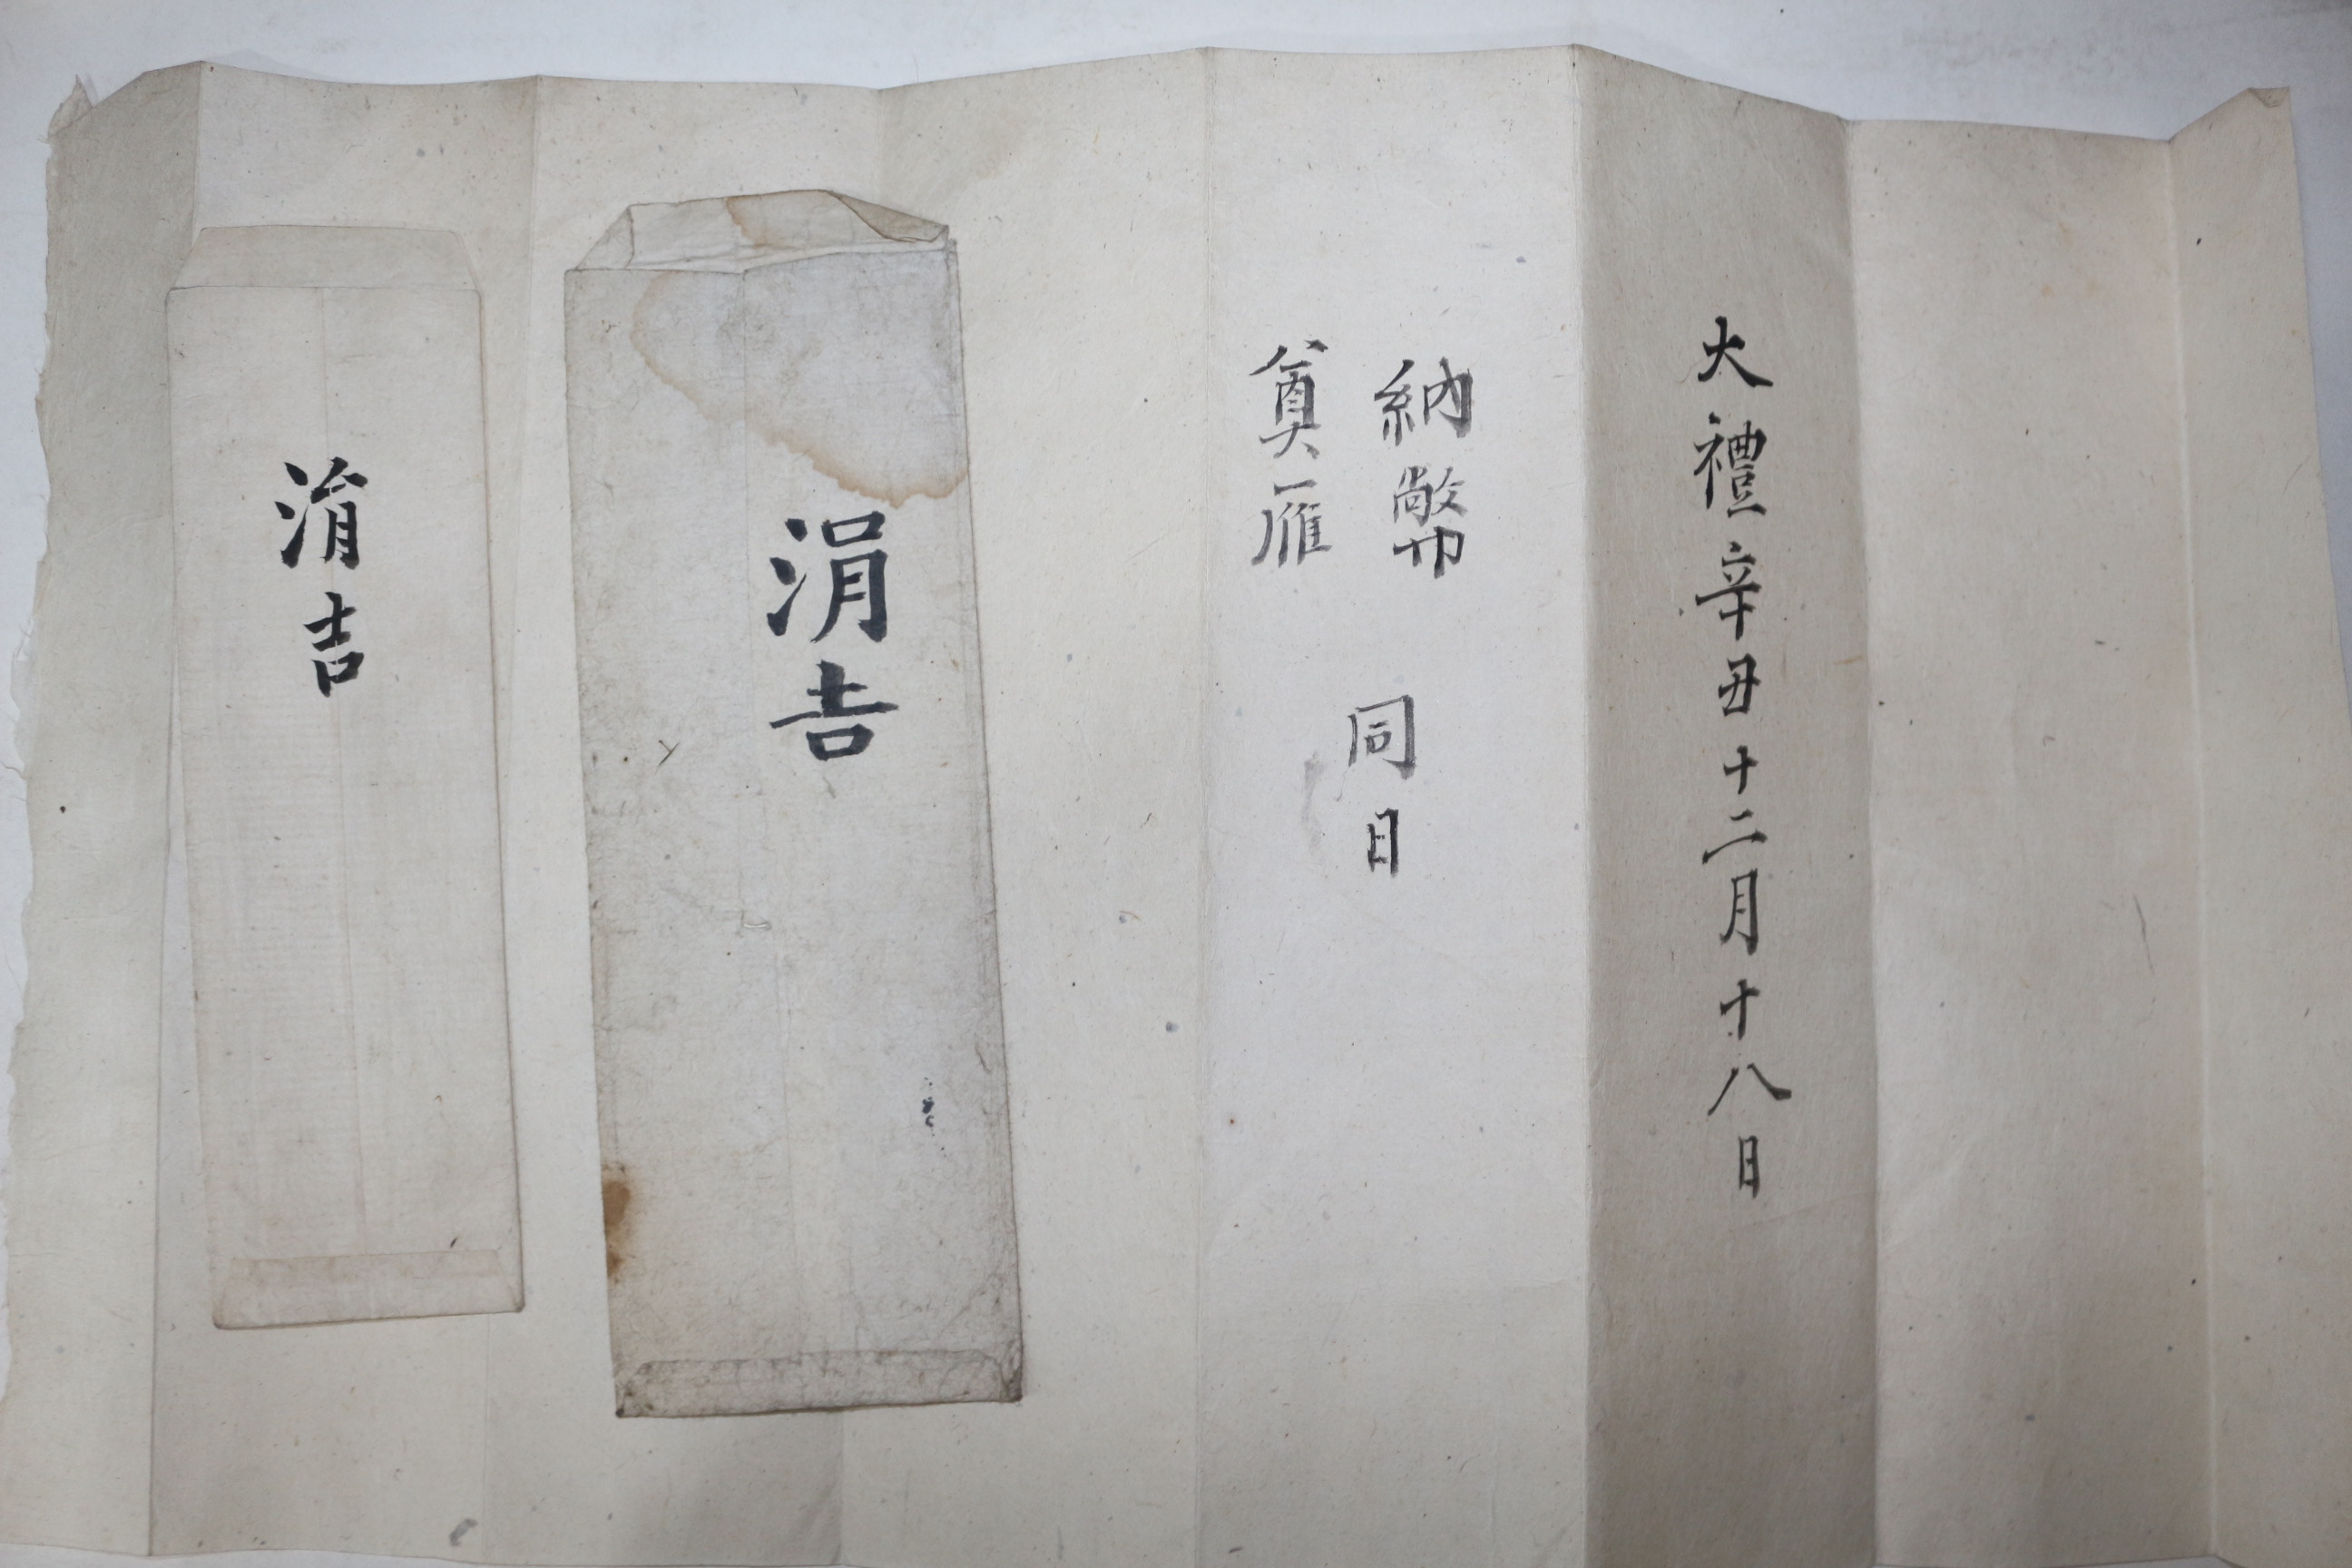 大禮辛丑十二月十八日
納幣
奠雁
同日
涓吉
涓吉